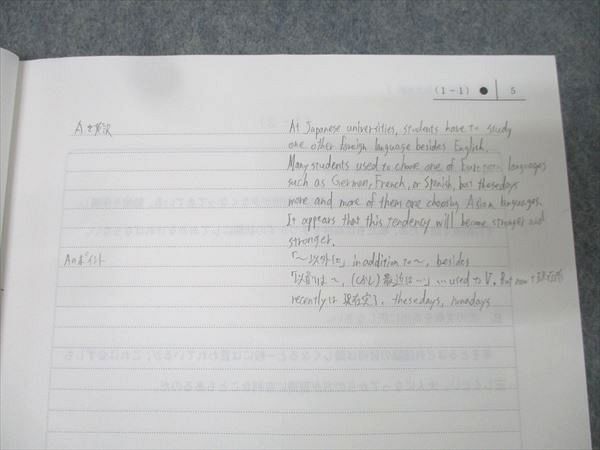 (1-1) ● 5
Aを英訳
At Japanese universities, students have to study
one other foreign language besides English.
Many students used to choose one of European languages
such as German, French, or Spanish, but thesedays
more and more of them are choosing Asian languages.
It appears that this tendency will become stronger and
stronger.
Aのポイント
「〜以外に」 in addition to 〜, besides
「以前は〜, (しかし)最近は…」 … used to V. But now + 現在形
recentlyは現在完了. thesedays, nowadays